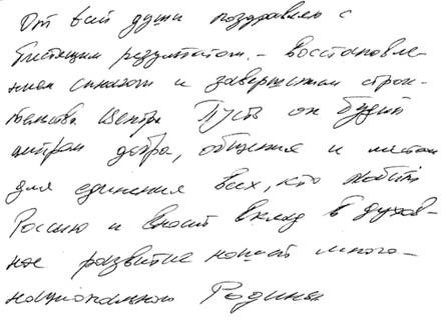 От всей души поздравляю с
блестящим результатом – восстановле-
нием и завершением строи-
тельства Центра Пусть он будет
центром добра, общения и местом
для единения всех, кто любит
Россию и вносит вклад в духов-
ное развитие нашей много-
национальной Родины